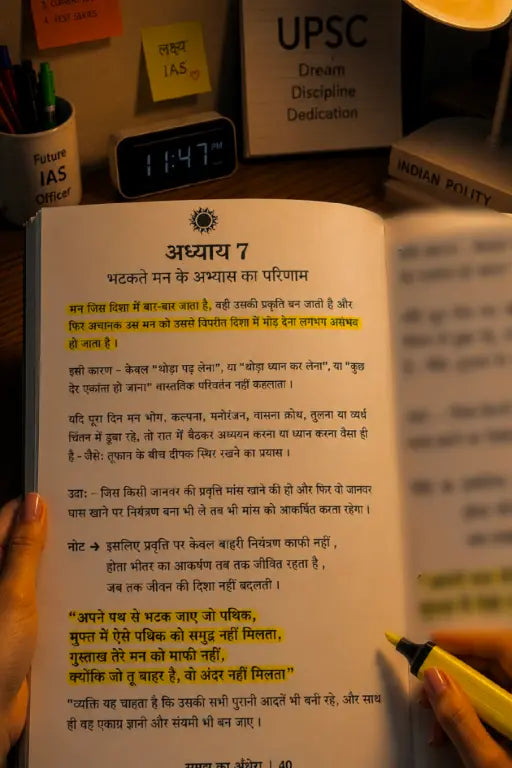 3. CURRENT
4. TEST SERIES
लक्ष्य
IAS
UPSC
Dream
Discipline
Dedication
11:47 PM
Future
IAS
Officer
INDIAN POLITY
अध्याय 7
भटकते मन के अभ्यास का परिणाम
मन जिस दिशा में बार-बार जाता है, वही उसकी प्रकृति बन जाती है और
फिर अचानक उस मन को उससे विपरीत दिशा में मोड़ देना लगभग असंभव
हो जाता है ।
इसी कारण – केवल "थोड़ा पढ़ लेना", या "थोड़ा ध्यान कर लेना", या "कुछ
देर एकांत हो जाना" वास्तविक परिवर्तन नहीं कहलाता ।
यदि पूरा दिन मन भोग, कल्पना, मनोरंजन, वासना क्रोध, तुलना या व्यर्थ
चिंतन में डूबा रहे, तो रात में बैठकर अध्ययन करना या ध्यान करना वैसा ही
है - जैसेः तूफान के बीच दीपक स्थिर रखने का प्रयास ।
उदाः – जिस किसी जानवर की प्रवृत्ति मांस खाने की हो और फिर वो जानवर
घास खाने पर नियंत्रण बना भी ले तब भी मांस को आकर्षित करता रहेगा ।
नोट → इसलिए प्रवृत्ति पर केवल बाहरी नियंत्रण काफी नहीं ,
होता भीतर का आकर्षण तब तक जीवित रहता है ,
जब तक जीवन की दिशा नहीं बदलती ।
"अपने पथ से भटक जाए जो पथिक,
मुफ्त में ऐसे पथिक को समुद्र नहीं मिलता,
गुस्ताख तेरे मन को माफी नहीं,
क्योंकि जो तू बाहर है, वो अंदर नहीं मिलता"
"व्यक्ति यह चाहता है कि उसकी सभी पुरानी आदतें भी बनी रहे, और साथ
ही वह एकाग्र ज्ञानी और संयमी भी बन जाए ।
का अँधेरा | 40